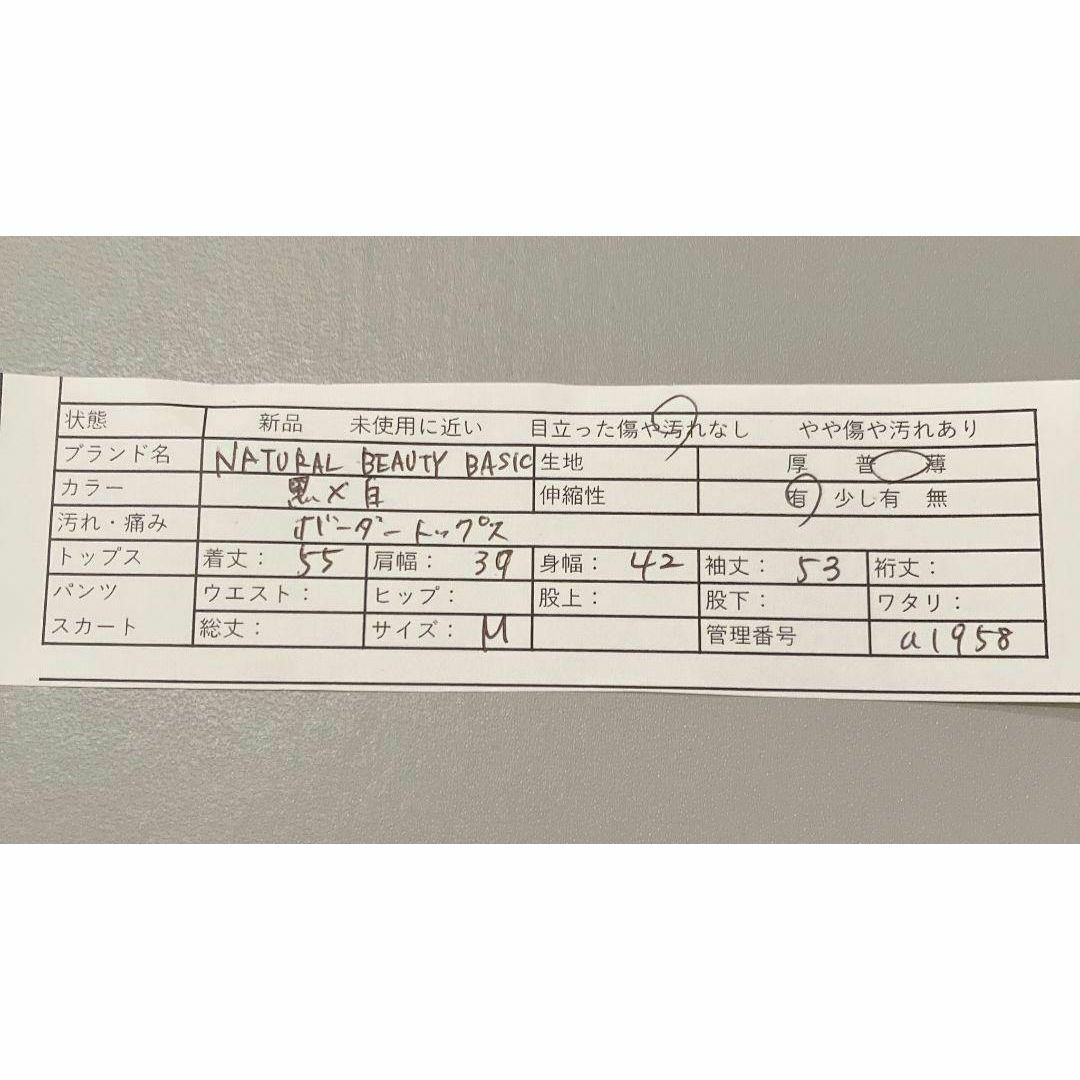 状態 新品 未使用に近い 目立った傷や汚れなし やや傷や汚れあり
ブランド名 NATURAL BEAUTY BASIC 生地 厚 普 薄
カラー 黒×白 伸縮性 有 少し有 無
汚れ・痛み ボーダートップス
トップス 着丈： 55 肩幅： 39 身幅： 42 袖丈： 53 裄丈：
パンツ ウエスト： ヒップ： 股上： 股下： ワタリ：
スカート 総丈： サイズ： M 管理番号 a1958